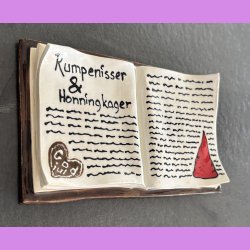 Kumpenisser
&
Honningkager
Gud